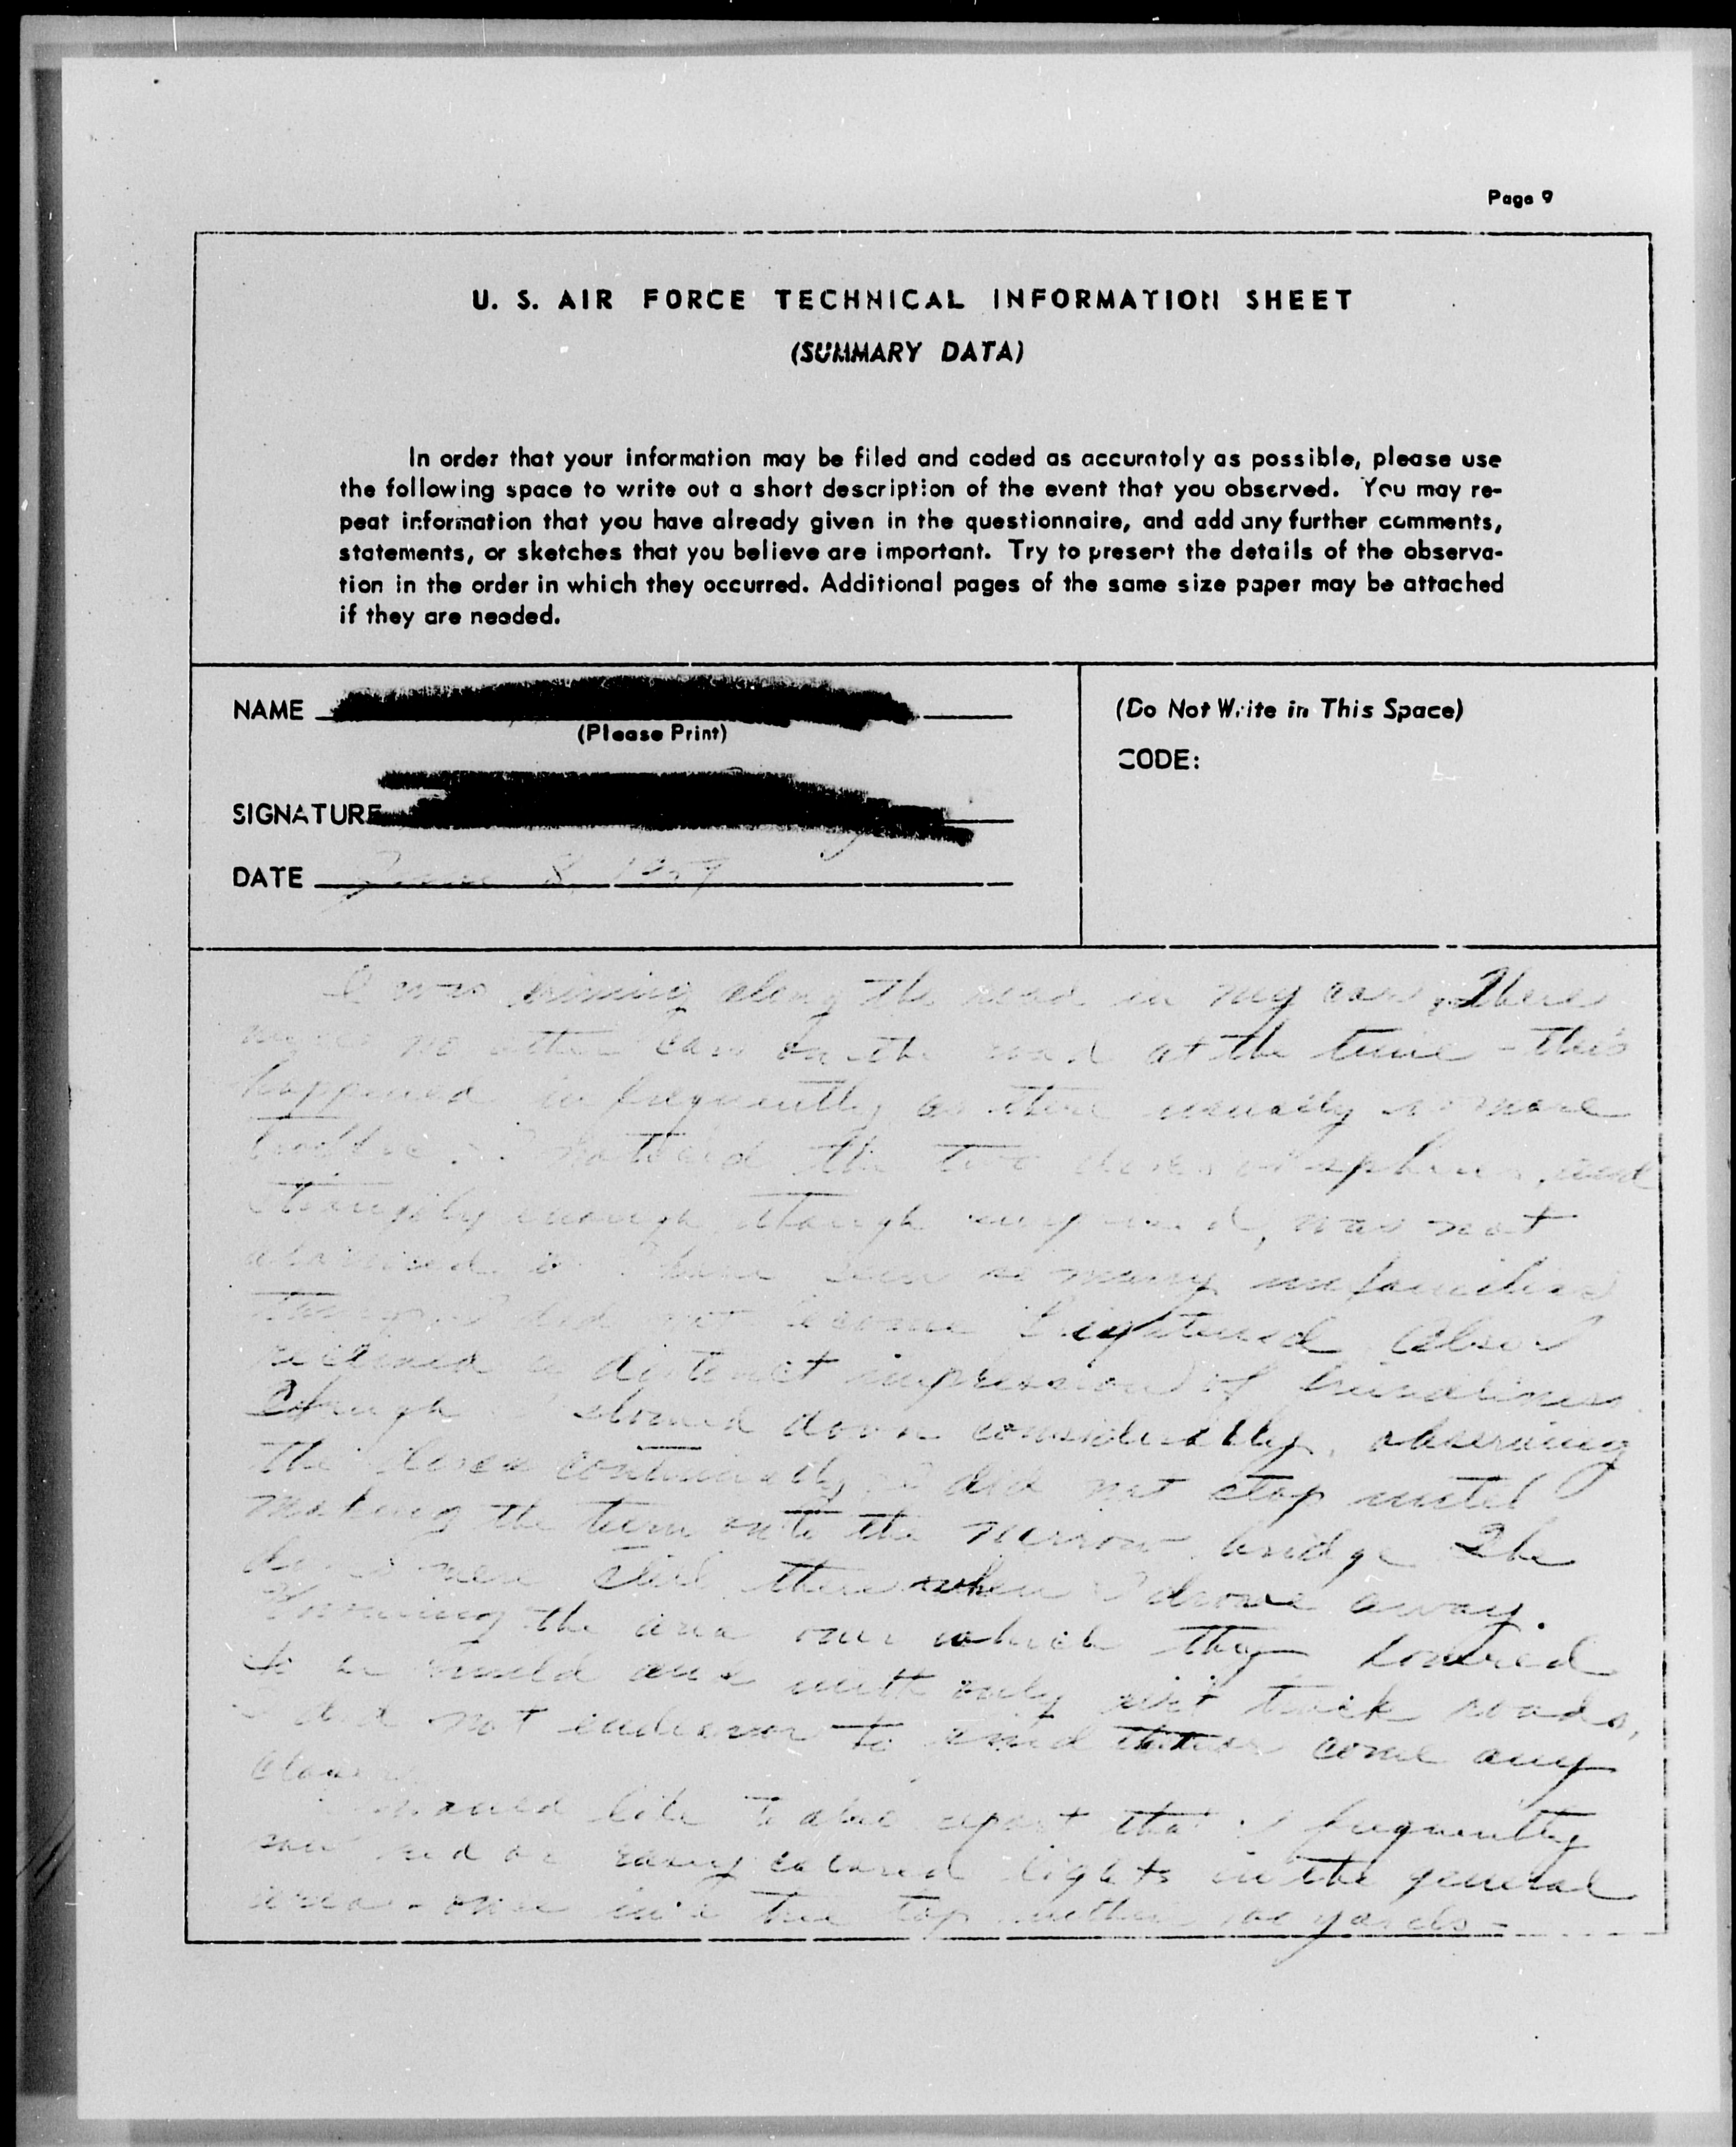 Page 9
U. S. AIR FORCE TECHNICAL INFORMATION SHEET
(SUMMARY DATA)
In order that your information may be filed and coded as accurately as possible, please use
the following space to write out a short description of the event that you observed. You may re-
peat information that you have already given in the questionnaire, and add any further comments,
statements, or sketches that you believe are important. Try to present the details of the observa-
tion in the order in which they occurred. Additional pages of the same size paper may be attached
if they are needed.
NAME
(Please Print)
SIGNATURE
DATE June 8, 1957
(Do Not Write in This Space)
CODE:
I was driving along the road in my car. There
was no other car on the road at the time - this
happened infrequently as there usually is more
traffic. I noticed the two discs or spheres, and
strangely enough, though surprised, was not
alarmed. I have seen so many unfamiliar
things I did not become frightened. Also I
received a distinct impression of friendliness.
Though I slowed down considerably, observing
the discs continually, I did not stop until
making the turn onto the narrow bridge. The
discs were still there when I drove away.
Knowing the area over which they hovered
to be and with only dirt track roads,
I did not endeavor to come any
closer.
I would like to also report that I frequently
saw red or rosey colored lights in the general
area - once in a tree top within 100 yards -